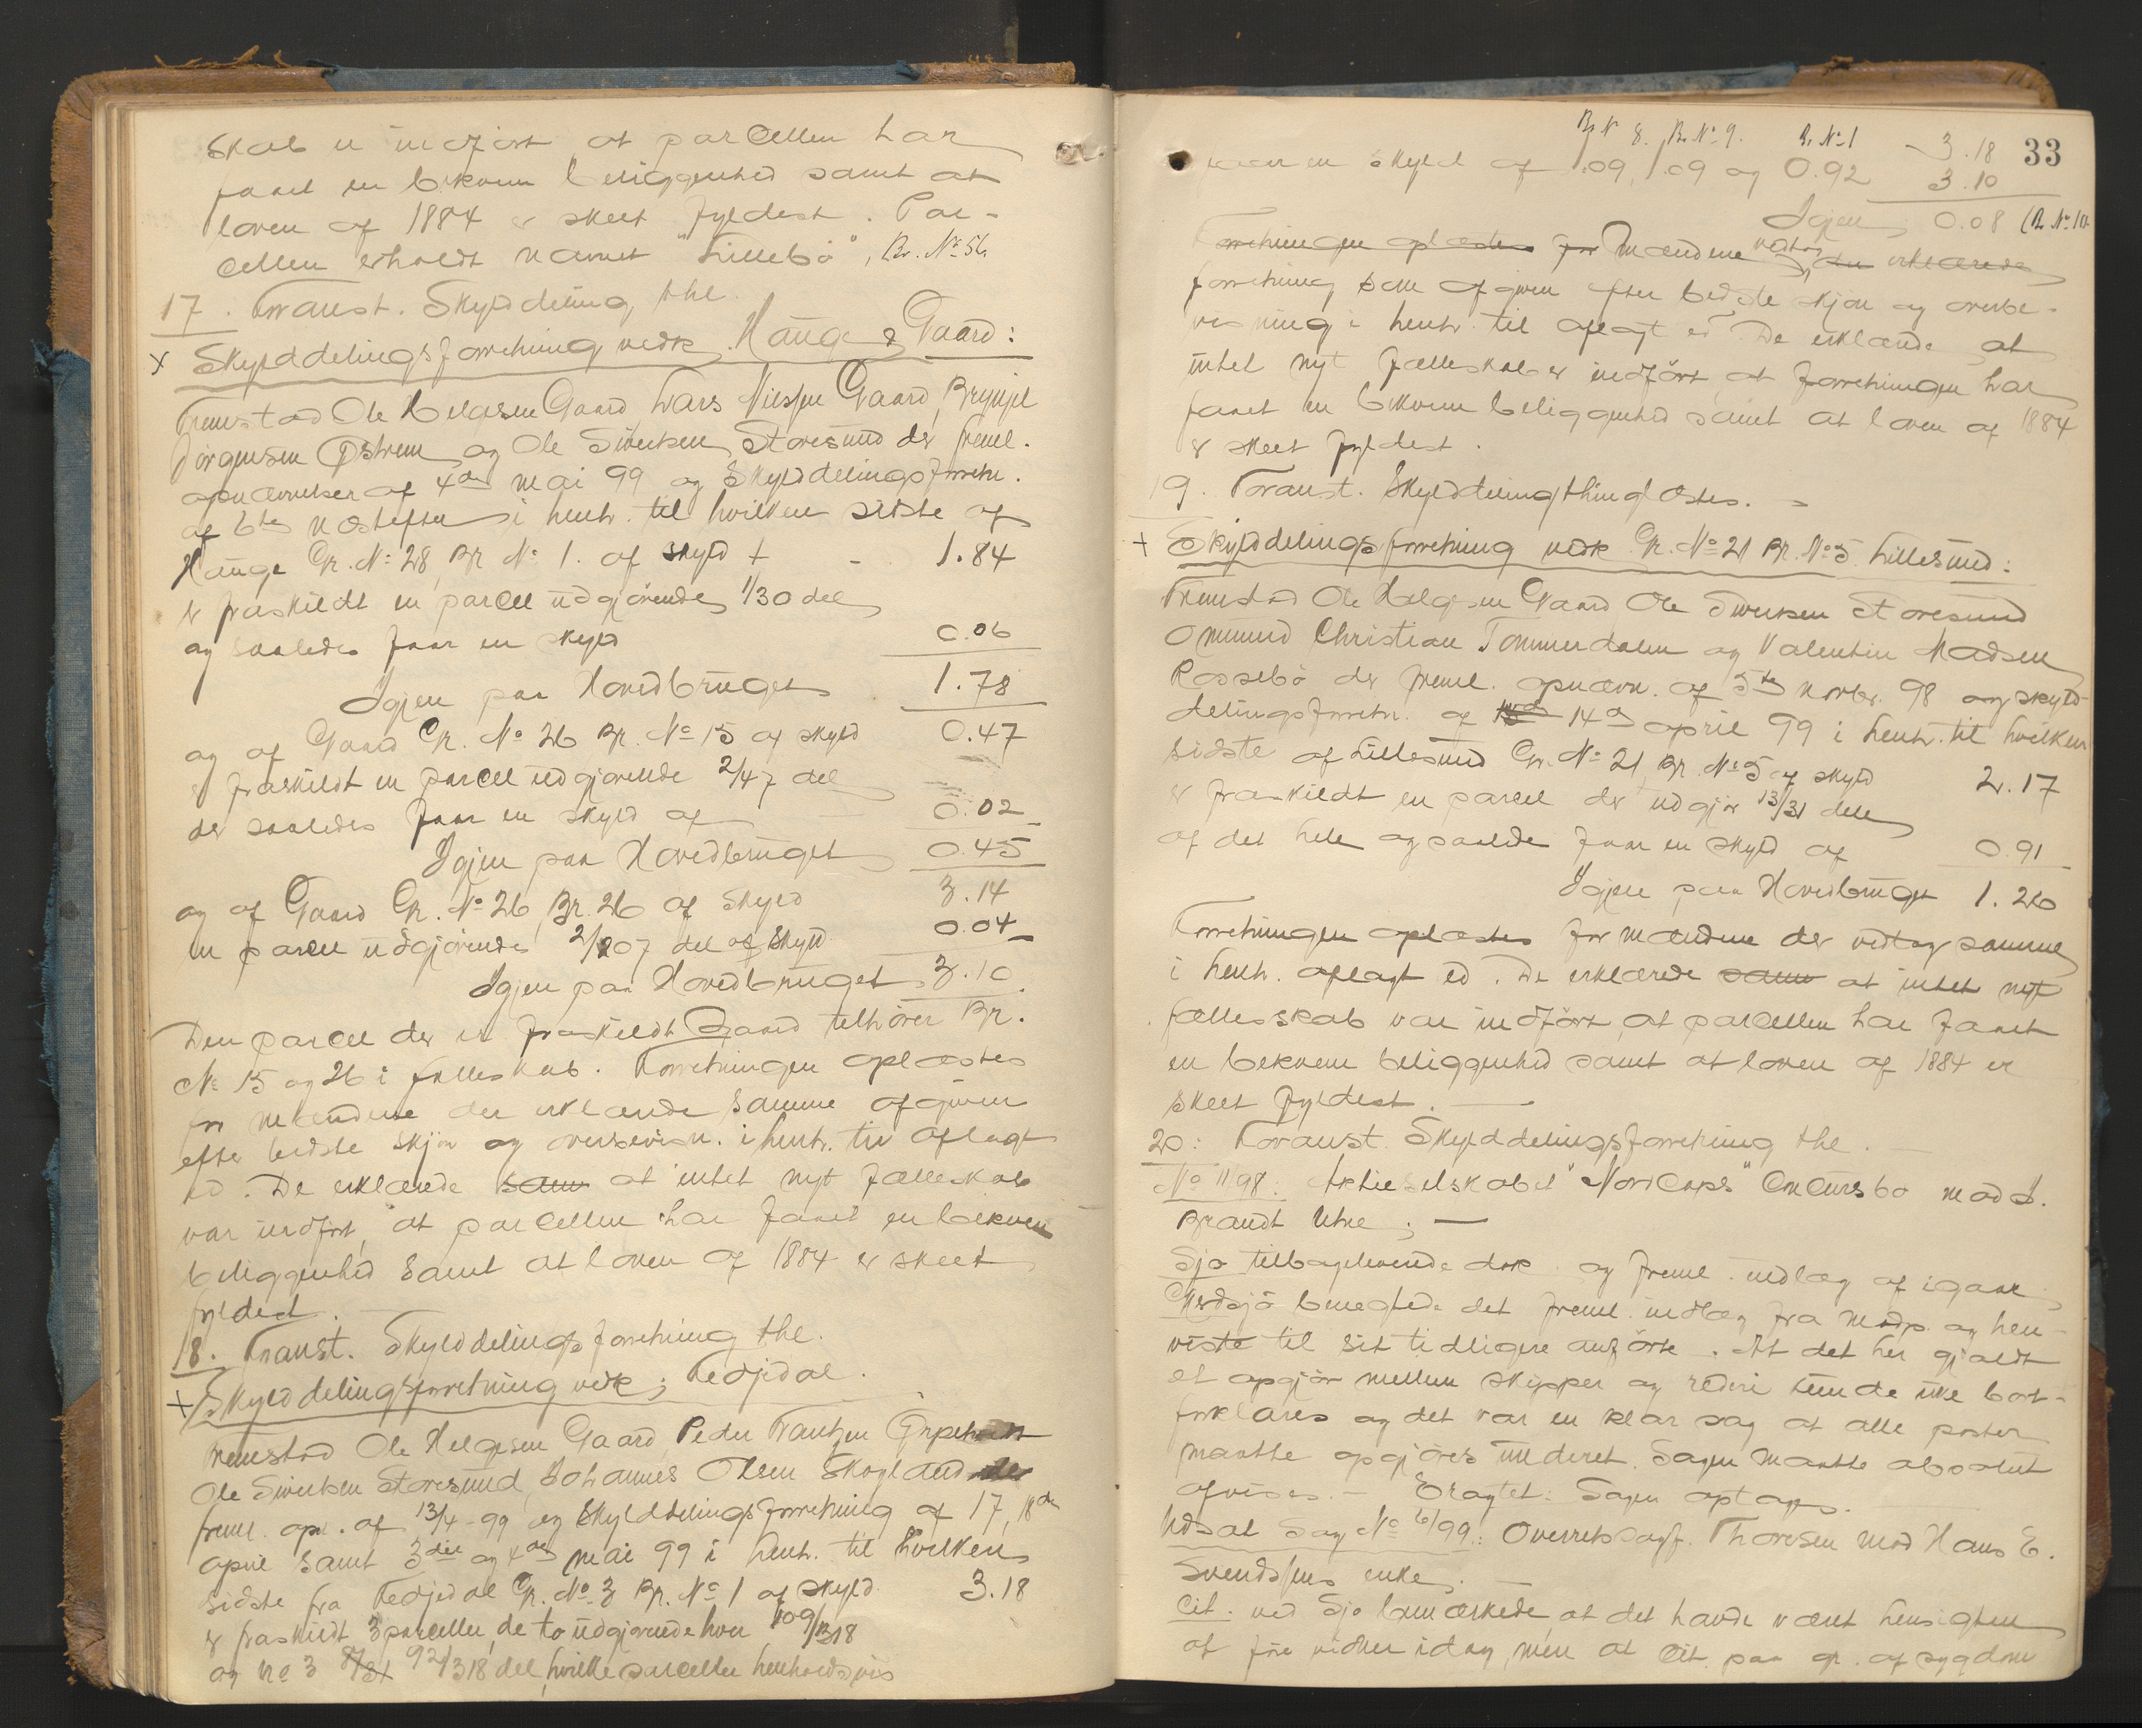 skab er indført at parcellen har
faaet en bekvem beliggenhed samt at
loven af 1884 er skeet fyldest. Par-
cellen erholdt navnet "Lillebø", Br. No 56.
17. Foranst. Skylddeling thl.
x Skylddelingsforretning vedk. Hauge & Gaard:
Fremstod Ole Helgesen Gaard, Lars Nilssen Gaard, Brynjel
Jørgensen Østrem og Ole Sivertsen Storesund der freml.
opnævnelser af 4de mai 99 og Skylddelingsforretn.
af 6te næstefter i henh. til hvilken sidste af
Hauge Gr. No: 28, Br No: 1. af skyld + - 1.84
er fraskildt en parcel udgjørende 1/30 del
og saaledes faar en skyld 0.06
Igjen paa Hovedbruget 1.78
og af Gaard Gr. No 26 Br. No 15 af skyld 0.47
er fraskildt en parcel udgjørende 2/47 del
der saaledes faar en skyld af 0.02
Igjen paa Hovedbruget 0.45
og af Gaard Gr. No 26, Br. 26 af skyld 3.14
en parcel udgjørende 2/207 del af skyld 0.04
Igjen paa Hovedbruget 3.10
Den parcel der er fraskildt Gaard tilhører Br.
No 15 og 26 i fælleskab. Forretningen oplæstes
for mændene der erklærede samme afgiven
efter bedste skjøn og overbevisn. i henh. til aflagt
ed. De erklærede sam at intet nyt fælleskab
var indført, at parcellen har faaet en bekvem
beliggenhed samt at loven af 1884 er skeet
fyldest.
18. Foranst. Skylddelingsforretning thl.
+ Skylddelingsforretning vedk; Kedjedal.
Fremstod Ole Helgesen Gaard, Peder Frantzen
Ole Sivertsen Storesund, Johannes Olsen Skogland der
freml. opn. af 13/4-99 og Skylddelingsforretning af 17, 18de
april samt 3die og 4de mai 99 i henh. til hvilken
sidste fra Kedjedal Gr. No. 3 Br. No 1 af skyld 3.18
er fraskildt 3 parceller, de to udgjørende hver 109/318
og No 3 92/318 del, hvilke parceller henholdsvis
Br No 8. Br. No 9. Br. No 1 3.18 33
faar en skyld af 1.09, 1.09 og 0.92 3.10
Igjen 0.08 (Br. No 10
Forretningen oplæstes for Mændene vedtog der erklærede
forretning som afgiven efter bedste skjøn og overbe-
visning i henh. til aflagt ed. De erklærede at
intet nyt fælleskab er indført, at forretningen har
faaet en bekvem beliggenhed samt at loven af 1884
er skeet fyldest.
19. Foranst. Skylddeling thinglæstes. -
+ Skylddelingsforretning vedk Gr. No 21 Br. No 5 Lillesund:
Fremstod Ole Helgesen Gaard Ole Sivertsen Storesund
Omund Christian Tømmerdalen og Valentin Madsen
Rossebø der freml. opnævn. af 5te novbr. 98 og skyld-
delingsforretn. af 14de april 99 i henh. til hvilken
sidste af Lillesund Gr. No 21, Br. No 5 af skyld 2.17
er fraskildt en parcel der udgjør 13/31 dele
af det hele og saaledes faar en skyld af 0.91
Igjen paa Hovedbruget 1.26
Forretningen oplæstes for mændene der vedtog samme
i henh. aflagt ed. De erklærede sam at intet nyt
fællesskab var indført, at parcellen har faaet
en bekvem beliggenhed samt at loven af 1884 er
skeet fyldest. -
20: Foranst. Skylddelingsforretning thl. -
No 11/98: Aktieselskabet "Nordcaps" Concursbo mod J.
Brandt Utne; -
Sjø tilbageleverede dok. og freml. indlæg af igaar.
Medsjø benegtede det freml. indlæg fra modp. og hen-
viste til sit tidligere anførte. At det her gjaldt
et opgjør mellem skipper og rederi kunde ikke bort-
forklares og det var en klar sag at alle poster
maatte opgjøres underet. Sagen maatte absolut
afvises. - Eragtet: Sagen optages.
Udsat Sag No 6/99: Overretssagf. Thoresen mod Hans E.
Svendsens enke. -
Cit. ved Sjø bemærkede, at det havde været hensigten
at føre vidner idag, men at Cit. paa gr. af sygdom